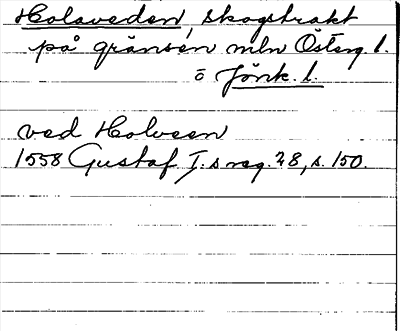 Holaveden, skogstrakt
på gränsen mln Österg. l.
o Jönk. l.
ved Holveen
1558 Gustaf I.s reg. 28, s. 150.